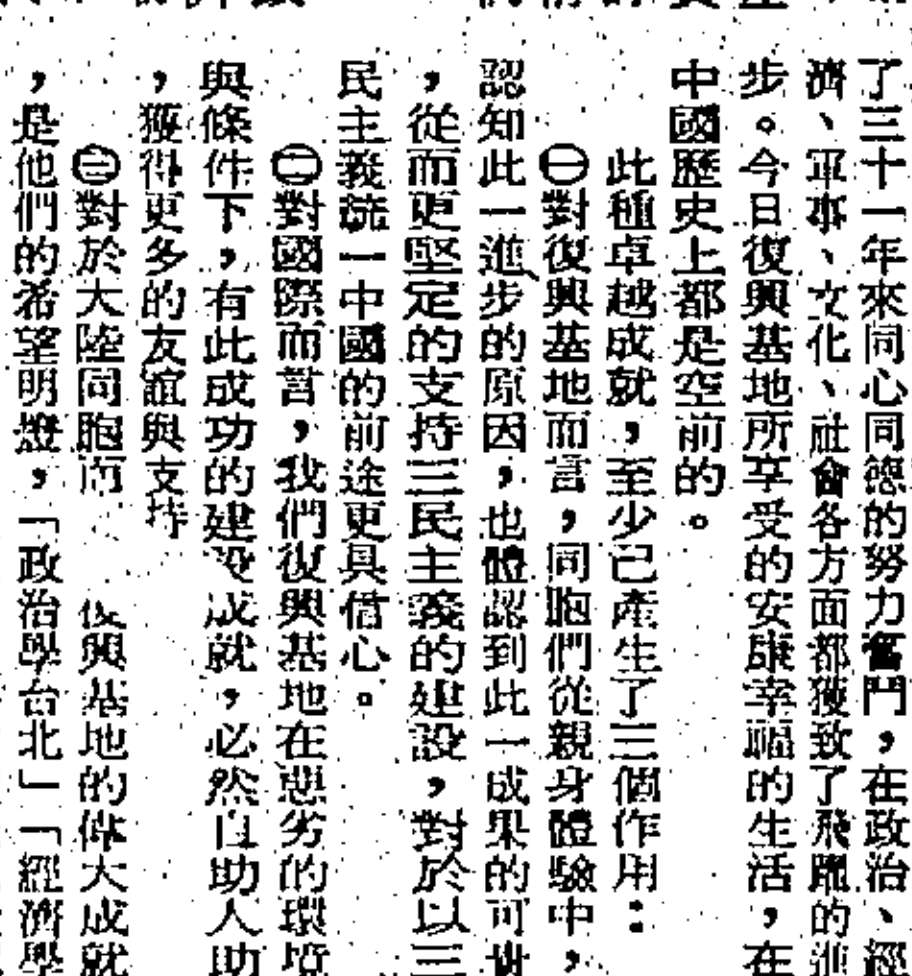 了三十一年來同心同德的努力奮鬥，在政治、經
濟、軍事、文化、社會各方面都獲致了飛躍的進
步。今日復興基地所享受的安康幸福的生活，在
中國歷史上都是空前的。
此種卓越成就，至少已產生了三個作用：
㊀對復興基地而言，同胞們從親身體驗中，
認知此一進步的原因，也體認到此一成果的可貴
，從而更堅定的支持三民主義的建設，對於以三
民主義統一中國的前途更具信心。
㊁對國際而言，我們復興基地在惡劣的環境
與條件下，有此成功的建設成就，必然自助人助
，獲得更多的友誼與支持
㊂對於大陸同胞而 復興基地的偉大成就
，是他們的希望明燈，「政治學台北」「經濟學